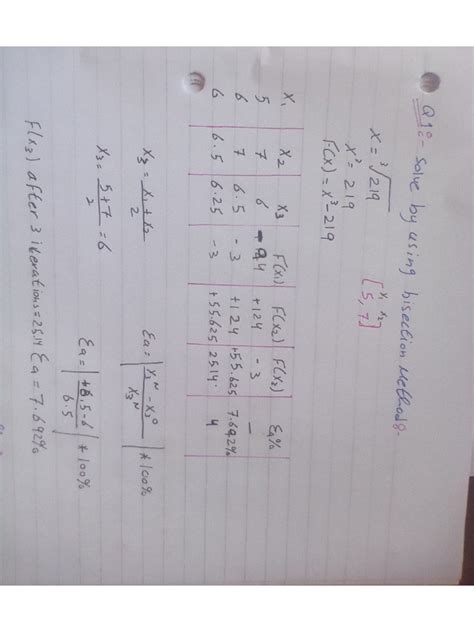 Q1:- Solve by using bisection Method:-
x = ∛219
x³ = 219
F(x) = x³-219
x₁ x₂
[5, 7]
x₁ x₂ x₃ F(x₁) F(x₂) F(x₃) Ea%
5 7 6 -94 +124 -3 –
6 7 6.5 -3 +124 +55.625 7.692%
6 6.5 6.25 -3 +55.625 25.14 4
x₃ = x₁+x₂ / 2
Ea = | x₃ᴺ - x₃⁰ / x₃ᴺ | * 100%
x₃ = 5+7 / 2 = 6
Ea = | 6.5-6 / 6.5 | * 100%
F(x₃) after 3 iterations = 25.14 Ea = 7.692%